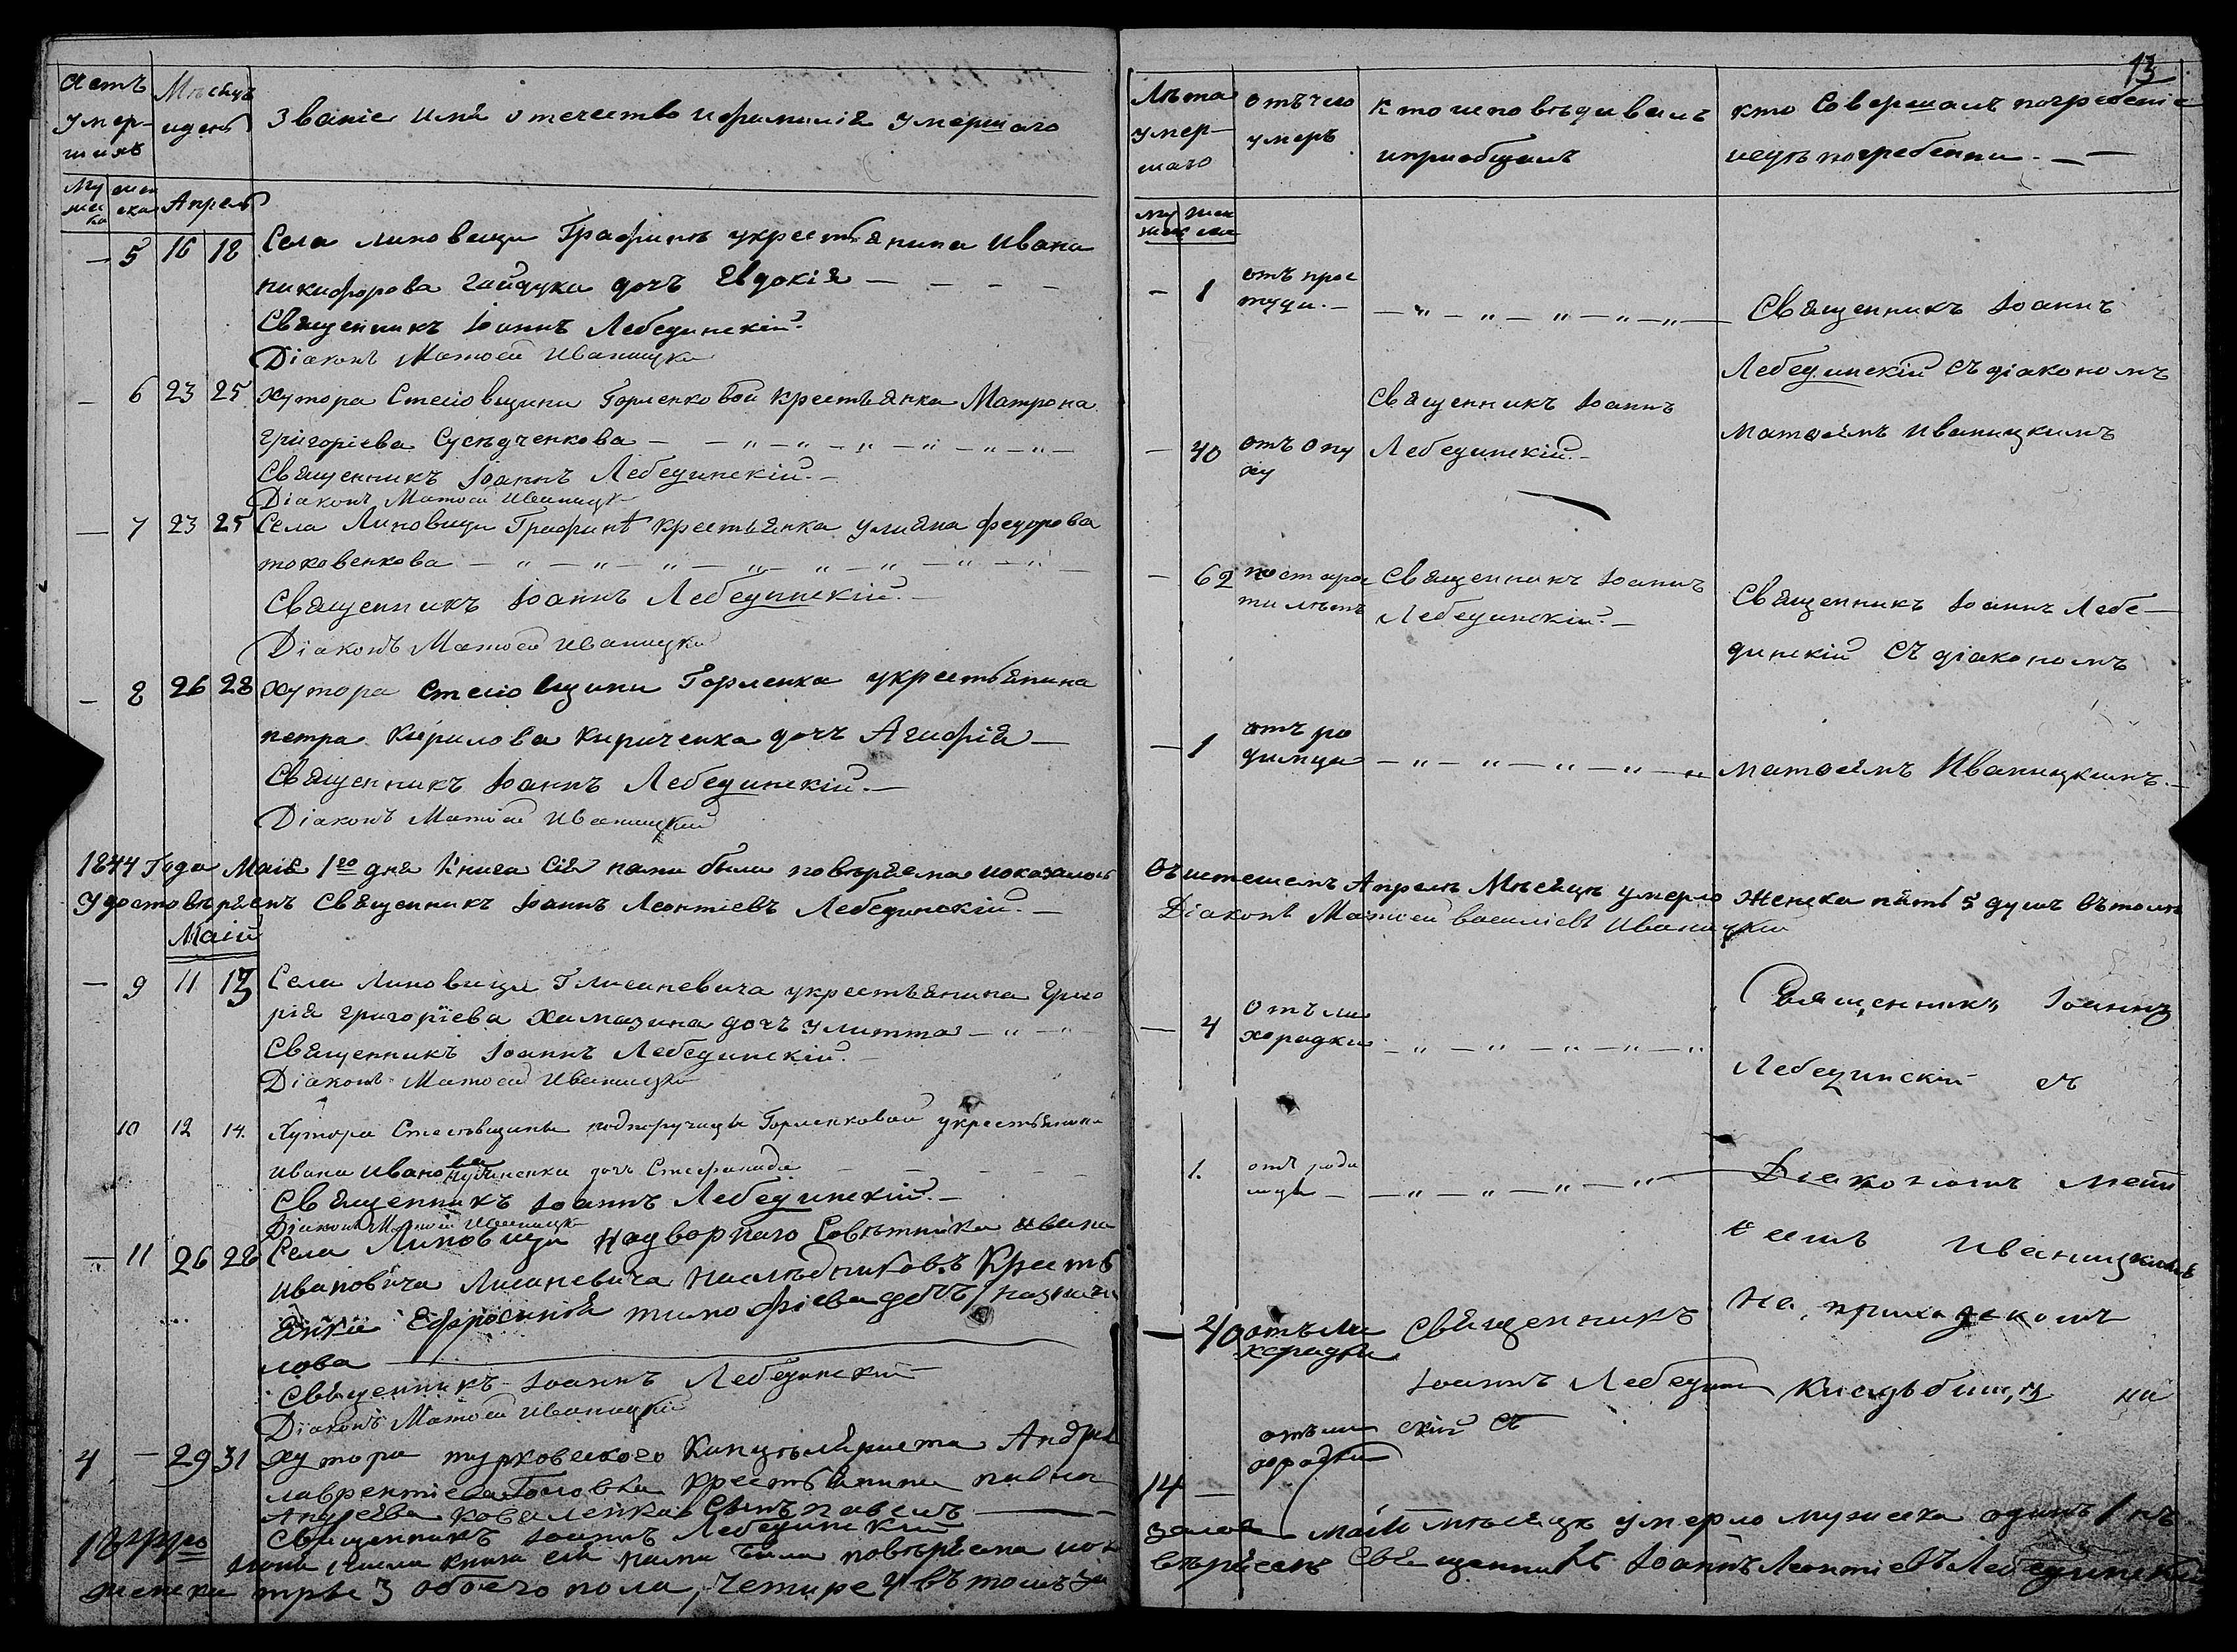 Счетъ умер-шихъ
Мѣсяцъ и день
Званіе имя отечество и фамилія умершаго
муже-ска
жен-ска
Апрель
— 5 16 18 Села Линовици Графинѣ у крестьянина Ивана
никифорова гайдука дочъ Евдокія —
Священникъ Іоаннъ Лебединскій.
Діаконъ Матѳей Иваницкій
— 6 23 25 хутора Степовщини Горленковой крестьянка Матрона
григоріева Сусѣдченкова —
Священникъ Іоаннъ Лебединскій.
Діаконъ Матѳей Иваницк
— 7 23 25 Села Линовици Графинѣ крестьянка улияна федорова
токовенкова —
Священникъ Іоаннъ Лебединскій.
Діаконъ Матѳей Иваницкій
— 8 26 28 хутора Степовщини Горленка у крестьянина
петра Кирилова Кириченка дочъ Агафія —
Священникъ Іоаннъ Лебединскій. —
Діаконъ Матѳей Иваницкій
1844 Года Маія 1го дня Книга Сія нами была повѣряема
Священникъ Іоаннъ Леонтіевъ Лебединскій. —
Маій
— 9 11 13 Села Линовици Г Лисаневича у крестьянина Григо
рія григоріева дочъ улитта —
Священникъ Іоаннъ Лебединскій.
Діаконъ Матѳей Иваницкій
10 12 14. Хутора Степовщины подпоручицы Горленковой у крестьянина
Ивана Иванова дочъ Стефанида
Священникъ Іоаннъ Лебединскій. —
Діаконъ Матѳей Иваницк
— 11 26 28 Села Линовици Надворнаго Совѣтника Ивана
Ивановича Лисаневича наслѣдниковъ Кресть
янки Ефросинія тимофіева дочъ
лова —
Священникъ Іоаннъ Лебединскій
Діаконъ Матѳей Иваницкій
4 — 29 31 хутора турковского Канцеляриста Андрея
лаврентіева Головки крестьянина павла
Андреева коваленка Сынъ павелъ —
Священникъ Іоаннъ Лебединскій
1844го Іюня 1 числа книга сія нами была повѣряема
женска три 3 обоего пола, четире 4 въ томъ
13
Лѣта умер-шаго
отъ чего умеръ
кто исповѣдивалъ и приобщалъ
кто Совершалъ погребеніе и гдѣ погребенни. —
муж
жен ска
— 1 отъ прос
туди. —
Священникъ Іоаннъ
Лебединскій Съ діакономъ
матѳѣемъ иваницкимъ
— 40 отъ опу
ху
Священникъ Іоаннъ
Лебединскій. —
— 62 по старос
ти лѣтъ
Священникъ Іоаннъ
Лебединскій. —
Священникъ Іоаннъ Лебе-
динскій Съ діакономъ
— 1 отъ ро
димца
матѳѣемъ Иваницкимъ. —
Апрелѣ Мѣсяцѣ умерло Женска пять 5 душъ въ томъ
Діаконъ Матѳей василіевъ Иваницкій
— 4 отъ ли
хорадки
Священникъ Іоаннъ
Лебединскій съ
1. отъ роди
мца —
Діакономъ Матѳ
еемъ Иваницкимъ
— 40 отъ ли
хорадки
Священникъ
Іоаннъ Лебедин
скій Съ
на приходскомъ
Кладбищѣ
14 — отъ ли
хорадки
маіи мѣсяцѣ умерло мужеска одинъ 1 нъ
вѣряемъ Священникъ Іоаннъ Леонтіевъ Лебединскій